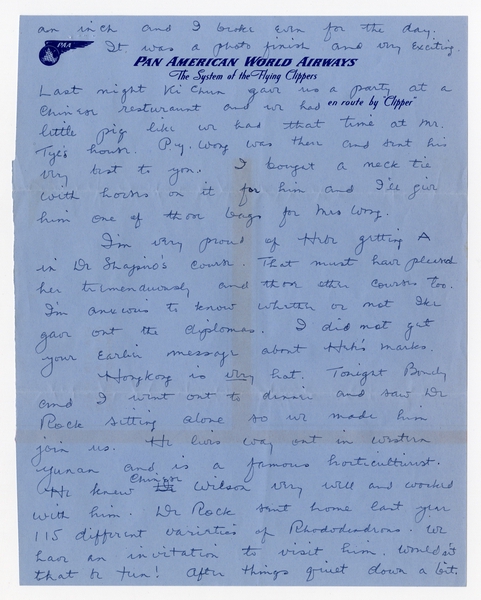 an inch and I broke even for the day.
It was a photo finish and very exciting.
PAA
PAN AMERICAN WORLD AIRWAYS
The System of the Flying Clippers
Last night Ki Chun gave us a party at a
en route by "Clipper"
Chinese resturaunt and we had
little pig like we had that time at Mr.
Tye's house. P.y. Wong was there and sent his
very best to you. I bought a neck tie
with horses on it for him and I'll give
him one of those bags for Mrs Wong.
I'm very proud of Hebe getting A
in Dr Shapiro's course. That must have pleased
her trumendously and those other courses too.
I'm anxious to know whether or not Ike
gave out the dyplomas. I did not get
your Earlier message about Heb's marks.
Hongkong is very hot. Tonight Bondy
and I went out to dinner and saw Dr
Rock sitting alone so we made him
join us. He lives way out in western
Yunan and is a famous horticulturist.
He knew Chinese Wilson very well and worked
with him. Dr Rock sent home last year
115 different varieties of Rhododendrons. We
have an invitation to visit him. Wouldn't
that be fun! After things quiet down a bit.